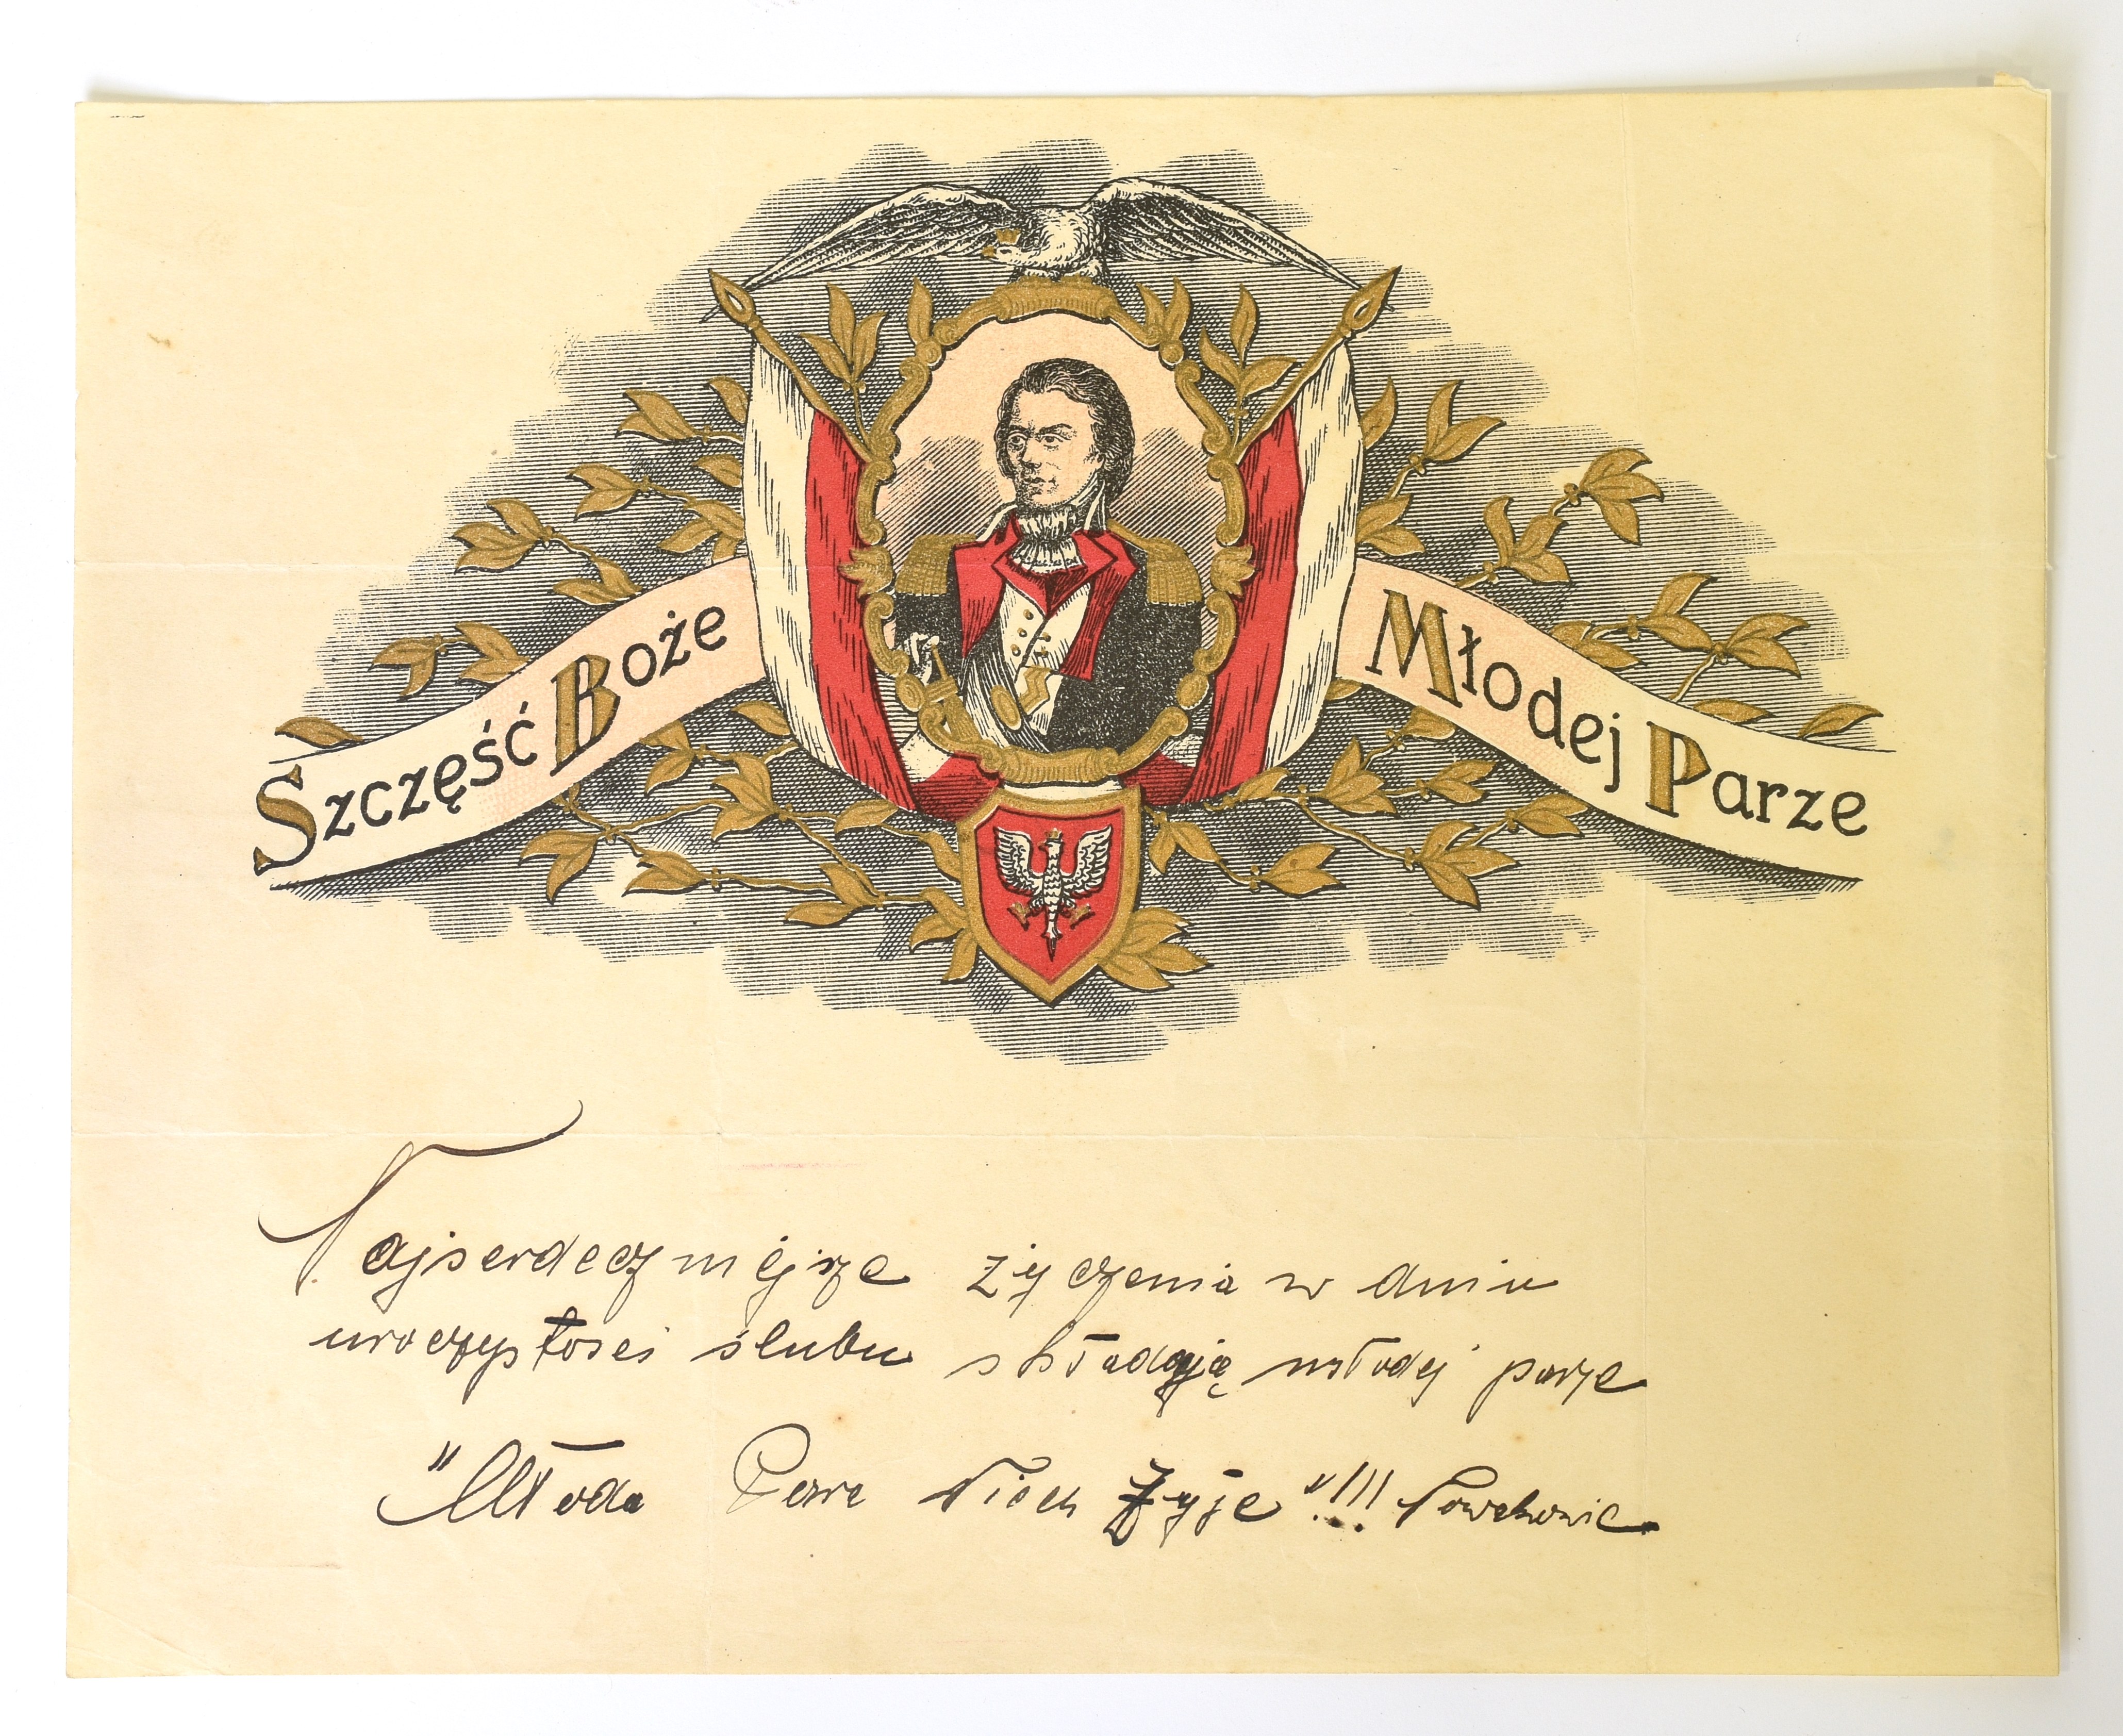 Szczęść Boże Młodej Parze
Najserdeczniejsze życzenia w dniu
uroczystosci slubu składają młodej parze
"Młoda Para Niech Żyje"!!!